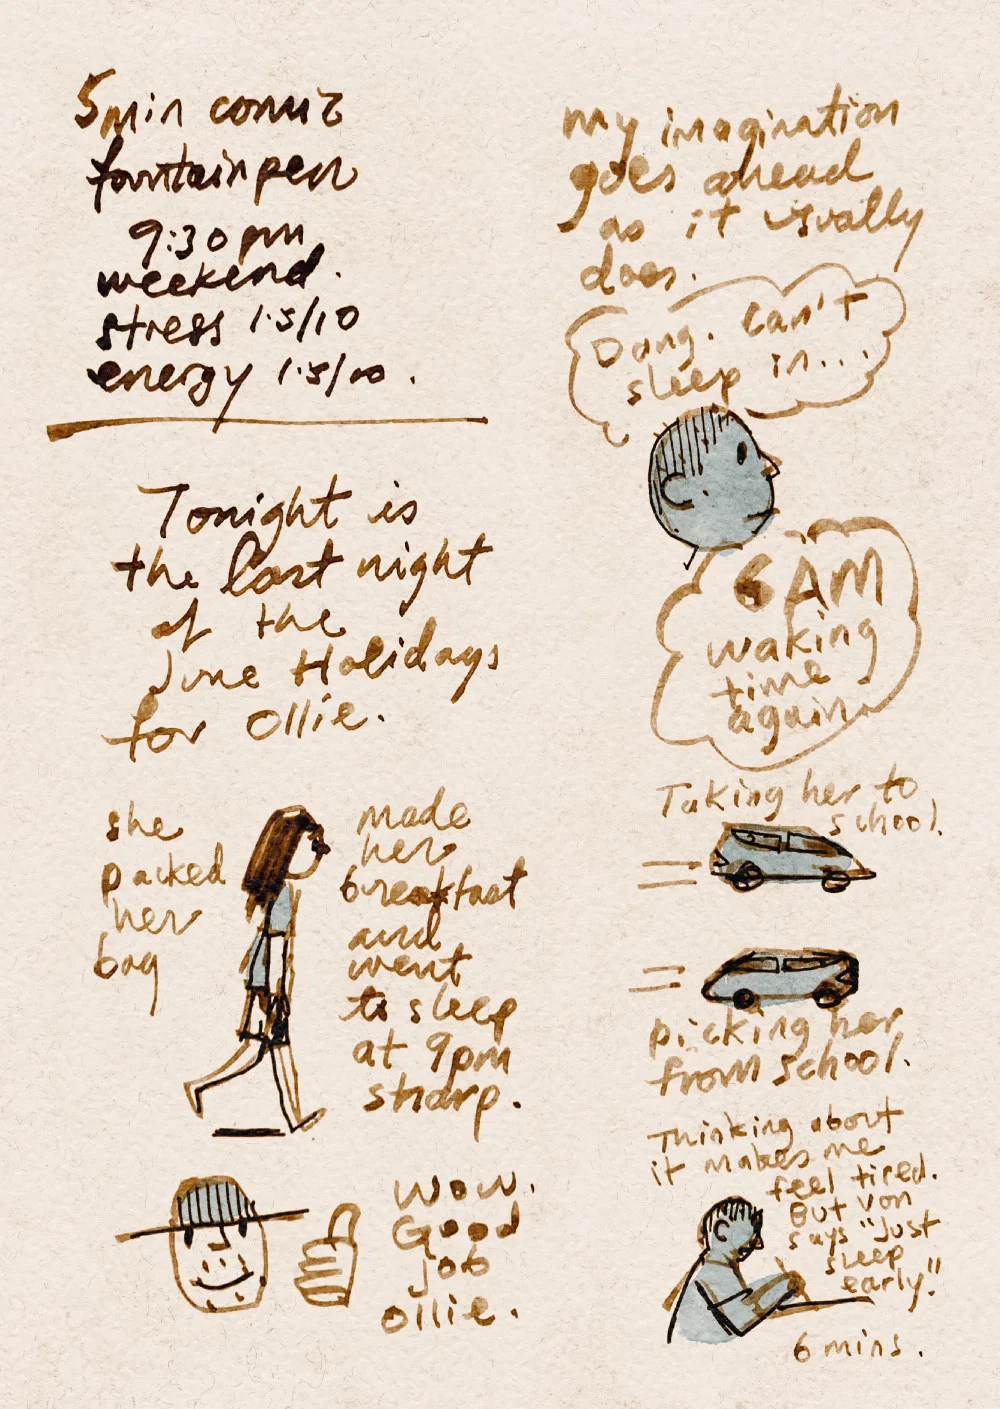 5min comic
fountain pen
9:30pm
weekend.
stress 1.5/10
energy 1.5/10.
Tonight is
the last night
of the
June Holidays
for Ollie.
she
packed
her
bag
made
her
breakfast
and
went
to sleep
at 9pm
sharp.
Wow.
Good
job
Ollie.
my imagination
goes ahead
as it usually
does.
Dang. Can't
sleep in...
6AM
waking
time
again
Taking her to
school.
picking her
from school.
Thinking about
it makes me
feel tired.
But von
says "Just
sleep
early."
6 mins.